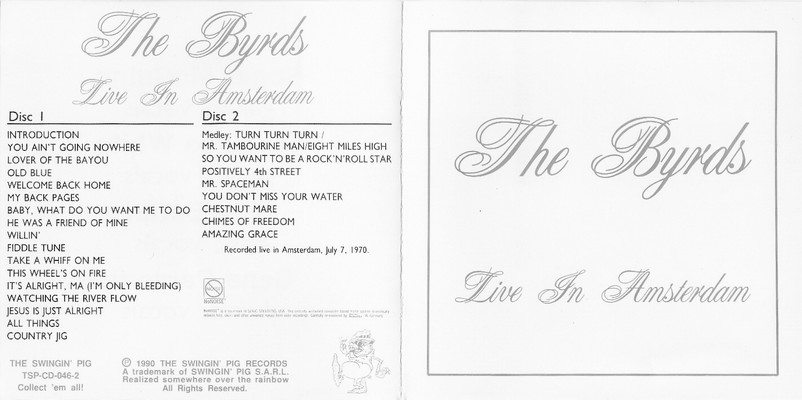 The Byrds
Live In Amsterdam
Disc 1
INTRODUCTION
YOU AIN'T GOING NOWHERE
LOVER OF THE BAYOU
OLD BLUE
WELCOME BACK HOME
MY BACK PAGES
BABY, WHAT DO YOU WANT ME TO DO
HE WAS A FRIEND OF MINE
WILLIN'
FIDDLE TUNE
TAKE A WHIFF ON ME
THIS WHEEL'S ON FIRE
IT'S ALRIGHT, MA (I'M ONLY BLEEDING)
WATCHING THE RIVER FLOW
JESUS IS JUST ALRIGHT
ALL THINGS
COUNTRY JIG
Disc 2
Medley: TURN TURN TURN /
MR. TAMBOURINE MAN/EIGHT MILES HIGH
SO YOU WANT TO BE A ROCK'N'ROLL STAR
POSITIVELY 4th STREET
MR. SPACEMAN
YOU DON'T MISS YOUR WATER
CHESTNUT MARE
CHIMES OF FREEDOM
AMAZING GRACE
Recorded live in Amsterdam, July 7, 1970.
THE SWINGIN' PIG
TSP-CD-046-2
Collect 'em all!
℗ 1990 THE SWINGIN' PIG RECORDS
A trademark of SWINGIN' PIG S.A.R.L.
Realized somewhere over the rainbow
All Rights Reserved.
The Byrds
Live In Amsterdam